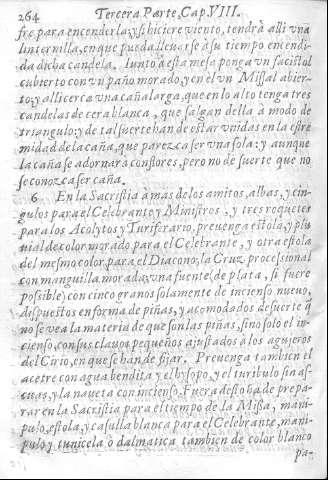 264 Tercera Parte, Cap. VIII.
fre para encenderla; y si hiciere viento, tendrà alli vna
linternilla, en que pueda llevarse à su tiempo encendi-
da dicha candela. Iunto à esta mesa ponga un facistol
cubierto con vn paño morado, y en el vn Missal abier-
to; y alli cerca vna caña larga, que en lo alto tenga tres
candelas de cera blanca, que salgan della à modo de
triangulo: y de tal suerte han de estar vnidas en la estre
midad de la caña, que parezca ser vna sola: y aunque
la caña se adornarà con flores, pero no de suerte que no
se conozca ser caña.
6 En la Sacristia à mas de los amitos, albas, y cin-
gulos para el Celebrante y Ministros, y tres roquetes
para los Acolytos y Turiferario, prevenga estola, y plu
vial de color morado para el Celebrante, y otra estola
del mesmo color, para el Diacono, la Cruz processional
con manguilla morada; vna fuente (de plata, si fuere
possible) con cinco granos solamente de incienso nuevo,
dispuestos en forma de piñas, y acomodados de suerte q̃
no se vea la materia de que son las piñas, sino solo el in-
cienso, con sus clavos pequeños ajustados à los agujeros
del Cirio, en que se han de fijar. Prevenga tambien el
acetre con agua bendita y el hysopo, y el turibulo sin as-
cuas, y la naveta con incienso. Fuera desto ha de prepa-
rar en la Sacristia para el tiempo de la Missa, mani-
pulo, estola, y casulla blanca para el Celebrante, mani-
pulo y tunicela ò dalmatica tambien de color blanco
pa-